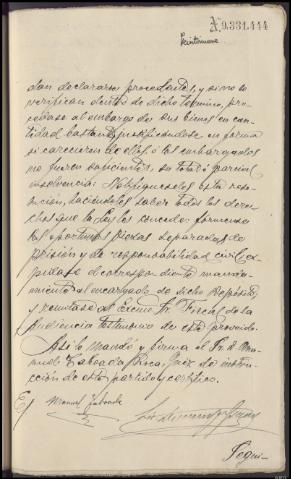 A 9.331.444
dan declararse procedentes, y si no lo
verifican dentro de dicho término, pro-
cédase al embargo de sus bienes en can-
tidad bastante, justificándose en forma
si carecieren de ellos ó los embargados
no fueren suficientes, su total ó parcial
insolvencia. Notifíqueseles esta reso-
lución, haciéndoles saber todos los dere-
chos que la Ley les concede; fórmense
las oportunas piezas separadas de
prisión y de responsabilidad civil, ex-
pídase el correspondiente manda-
miento al encargado de dicho Depósito
y remítase al Excmo. Sr. Fiscal de la
Audiencia testimonio de este proveido.
Así lo mandó y firma el Sr. D. Ma-
nuel Taboada Roca, Juez de instru-
cción de este partido, certifico.
E/ Manuel Taboada
Segui-